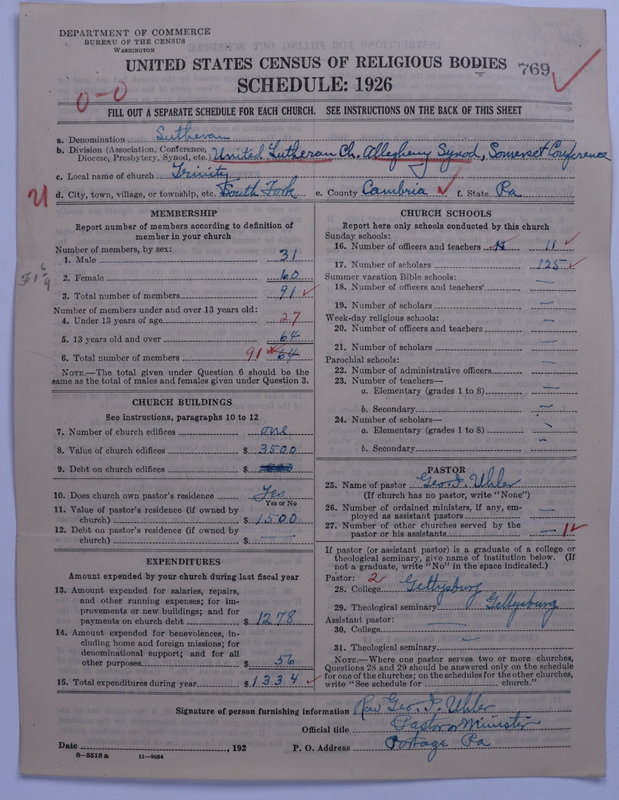 DEPARTMENT OF COMMERCE
BUREAU OF THE CENSUS
WASHINGTON
UNITED STATES CENSUS OF RELIGIOUS BODIES 769
SCHEDULE: 1926
0-0
FILL OUT A SEPARATE SCHEDULE FOR EACH CHURCH. SEE INSTRUCTIONS ON THE BACK OF THIS SHEET
a. Denomination Lutheran
b. Division (Association, Conference,
Diocese, Presbytery, Synod, etc.) United Lutheran Ch. Allegheny Synod, Somerset Conference
c. Local name of church Trinity
d. City, town, village, or township, etc. South Fork e. County Cambria f. State Pa
MEMBERSHIP
Report number of members according to definition of
member in your church
Number of members, by sex:
1. Male 31
2. Female 60
3. Total number of members 91
Number of members under and over 13 years old:
4. Under 13 years of age 27
5. 13 years old and over 64
6. Total number of members 91 64
NOTE.—The total given under Question 6 should be the
same as the total of males and females given under Question 3.
CHURCH BUILDINGS
See instructions, paragraphs 10 to 12
7. Number of church edifices one
8. Value of church edifices $ 3500
9. Debt on church edifices $
10. Does church own pastor's residence Yes
Yes or No
11. Value of pastor's residence (if owned by
church) $ 1500
12. Debt on pastor's residence (if owned by
church) $
EXPENDITURES
Amount expended by your church during last fiscal year
13. Amount expended for salaries, repairs,
and other running expenses; for im-
provements or new buildings; and for
payments on church debt $ 1278
14. Amount expended for benevolences, in-
cluding home and foreign missions; for
denominational support; and for all
other purposes $ 56
15. Total expenditures during year $ 1334
CHURCH SCHOOLS
Report here only schools conducted by this church
Sunday schools:
16. Number of officers and teachers 11
17. Number of scholars 125
Summer vacation Bible schools:
18. Number of officers and teachers —
19. Number of scholars —
Week-day religious schools:
20. Number of officers and teachers —
21. Number of scholars —
Parochial schools:
22. Number of administrative officers —
23. Number of teachers—
a. Elementary (grades 1 to 8) —
b. Secondary —
24. Number of scholars—
a. Elementary (grades 1 to 8) —
b. Secondary —
PASTOR
25. Name of pastor Geo. I. Uhler
(If church has no pastor, write "None")
26. Number of ordained ministers, if any, em-
ployed as assistant pastors —
27. Number of other churches served by the
pastor or his assistants — 1
If pastor (or assistant pastor) is a graduate of a college or
theological seminary, give name of institution below. (If
not a graduate, write "No" in the space indicated.)
Pastor: 2
28. College Gettysburg
29. Theological seminary Gettysburg
Assistant pastor:
30. College —
31. Theological seminary —
NOTE.—Where one pastor serves two or more churches,
Questions 28 and 29 should be answered only on the schedule
for one of the churches; on the schedules for the other churches,
write "See schedule for church."
Signature of person furnishing information Rev Geo. I. Uhler
Official title Pastor or Minister
Date , 192 P. O. Address Portage Pa
8—5518 a 11—9054